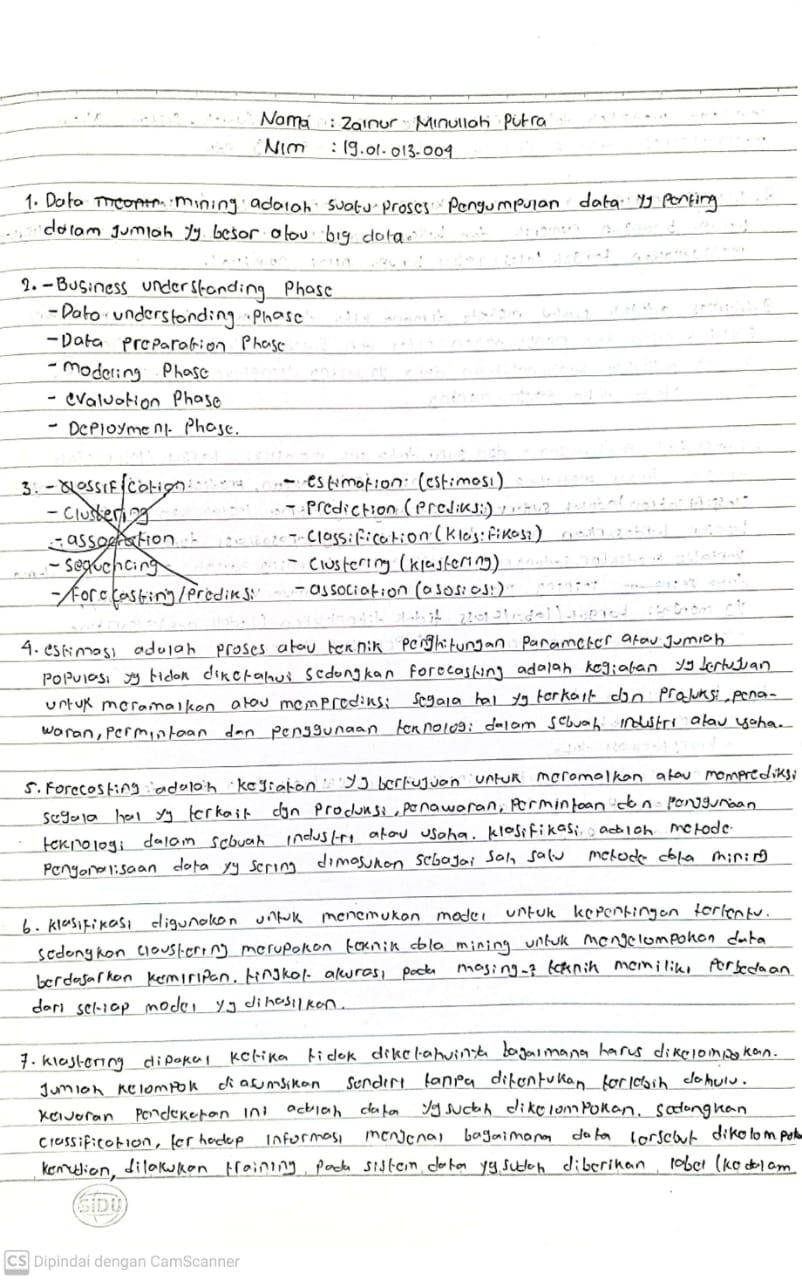 Nama : Zainur Minulloh Putra
Nim : 19.01.013.009
1. Data mining adalah suatu proses Pengumpulan data yg penting
dalam Jumlah yg besar atau big data.
2. - Business understanding Phase
- Data understanding Phase
- Data Preparation Phase
- Modeling Phase
- evaluation Phase
- Deployment Phase.
3. - classification - estimation (estimasi)
- Clustering - Prediction (Prediksi)
- association - Classification (Klasifikasi)
- Sequencing - Clustering (Klastering)
- Forecasting/Prediksi - association (asosiasi)
4. estimasi adalah proses atau teknik Penghitungan Parameter atau Jumlah
Populasi yg tidak diketahui sedangkan Forecasting adalah kegiatan yg bertujuan
untuk meramalkan atau memprediksi segala hal yg terkait dgn Produksi, pena-
waran, Permintaan dan penggunaan teknologi dalam sebuah industri atau usaha.
5. Forecasting adalah kegiatan yg bertujuan untuk meramalkan atau memprediksi
segala hal yg terkait dgn Produksi, Penawaran, Permintaan dan Penggunaan
teknologi dalam sebuah industri atau usaha. klasifikasi adalah metode
Penganalisaan data yg sering dimasukan sebagai salah satu metode data mining
6. klasifikasi digunakan untuk menemukan model untuk kepentingan tertentu.
sedangkan claustering merupakan teknik data mining untuk mengelompokan data
berdasarkan kemiripan. tingkat akurasi pada masing-2 teknik memiliki Perbedaan
dari setiap model yg dihasilkan.
7. klastering dipakai ketika tidak diketahuinya bagaimana harus dikelompokan.
Jumlah kelompok diasumsikan sendiri tanpa ditentukan terlebih dahulu.
keluaran Pendekatan ini adalah data yg sudah dikelompokan. sedangkan
classification, terhadap informasi mengenai bagaimana data tersebut dikelompok
kemudian, dilakukan training pada sistem data yg sudah diberikan label (kedalam
SIDU
CS Dipindai dengan CamScanner